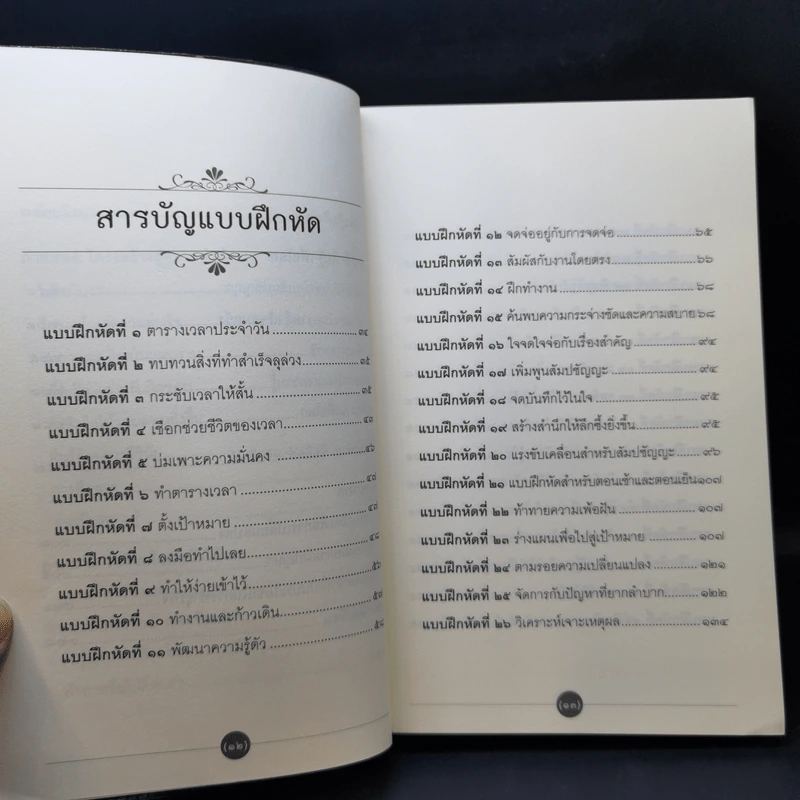 สารบัญแบบฝึกหัด
แบบฝึกหัดที่ ๑ ตารางเวลาประจำวัน ๓๔
แบบฝึกหัดที่ ๒ ทบทวนสิ่งที่ทำสำเร็จลุล่วง ๓๕
แบบฝึกหัดที่ ๓ กระชับเวลาให้สั้น ๓๕
แบบฝึกหัดที่ ๔ เชือกช่วยชีวิตของเวลา ๔๐
แบบฝึกหัดที่ ๕ บ่มเพาะความมั่นคง ๔๖
แบบฝึกหัดที่ ๖ ทำตารางเวลา ๔๗
แบบฝึกหัดที่ ๗ ตั้งเป้าหมาย ๔๗
แบบฝึกหัดที่ ๘ ลงมือทำไปเลย ๔๘
แบบฝึกหัดที่ ๙ ทำให้ง่ายเข้าไว้ ๕๖
แบบฝึกหัดที่ ๑๐ ทำงานและก้าวเดิน ๕๗
แบบฝึกหัดที่ ๑๑ พัฒนาความรู้ตัว ๕๘
(๑๒)
แบบฝึกหัดที่ ๑๒ จดจ่ออยู่กับการจดจ่อ ๖๕
แบบฝึกหัดที่ ๑๓ สัมผัสกับงานโดยตรง ๖๖
แบบฝึกหัดที่ ๑๔ ฝึกทำงาน ๖๘
แบบฝึกหัดที่ ๑๕ ค้นพบความกระจ่างชัดและความสบาย ๖๘
แบบฝึกหัดที่ ๑๖ ใจจดใจจ่อกับเรื่องสำคัญ ๙๔
แบบฝึกหัดที่ ๑๗ เพิ่มพูนสัมปชัญญะ ๙๔
แบบฝึกหัดที่ ๑๘ จดบันทึกไว้ในใจ ๙๕
แบบฝึกหัดที่ ๑๙ สร้างสำนึกให้ลึกซึ้งยิ่งขึ้น ๙๕
แบบฝึกหัดที่ ๒๐ แรงขับเคลื่อนสำหรับสัมปชัญญะ ๙๖
แบบฝึกหัดที่ ๒๑ แบบฝึกหัดสำหรับตอนเช้าและตอนเย็น ๑๐๗
แบบฝึกหัดที่ ๒๒ ท้าทายความเพ้อฝัน ๑๐๗
แบบฝึกหัดที่ ๒๓ ร่างแผนเพื่อไปสู่เป้าหมาย ๑๐๗
แบบฝึกหัดที่ ๒๔ ตามรอยความเปลี่ยนแปลง ๑๒๑
แบบฝึกหัดที่ ๒๕ จัดการกับปัญหาที่ยากลำบาก ๑๒๒
แบบฝึกหัดที่ ๒๖ วิเคราะห์เจาะเหตุผล ๑๓๔
(๑๓)